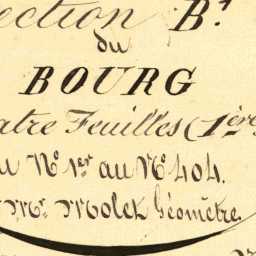 ection B.t
du
BOURG
atre Feuilles (1ère
u No. 1er au No. 404.
Mr. Molck Géomètre.